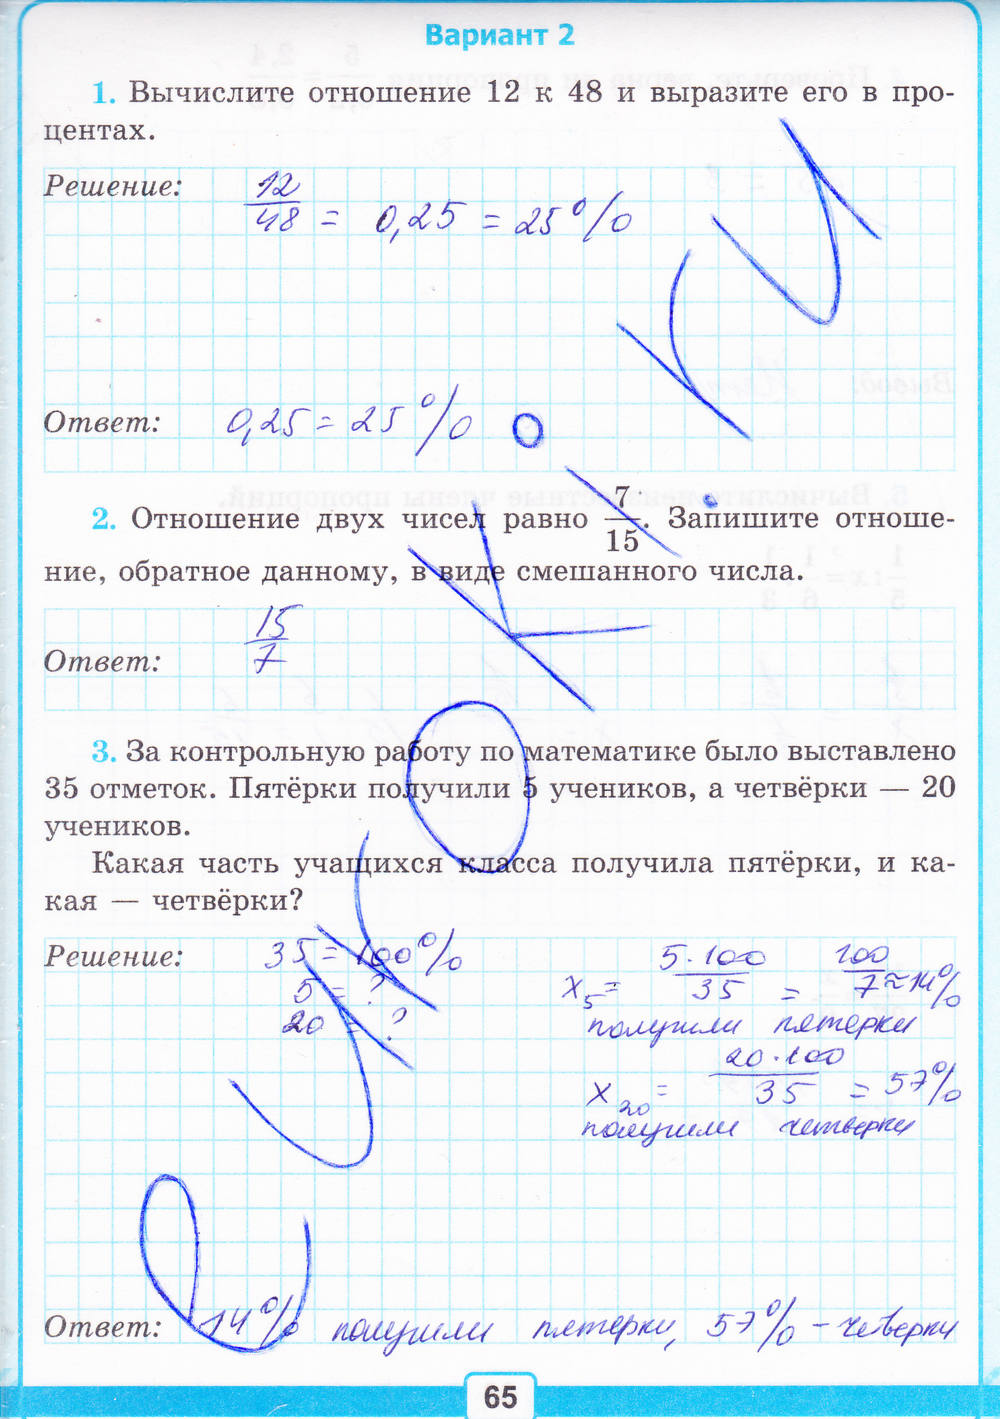 Вариант 2
1. Вычислите отношение 12 к 48 и выразите его в про-
центах.
Решение: 12/48 = 0,25 = 25%
Ответ: 0,25 = 25%
2. Отношение двух чисел равно 7/15. Запишите отноше-
ние, обратное данному, в виде смешанного числа.
Ответ: 15/7
3. За контрольную работу по математике было выставлено
35 отметок. Пятёрки получили 5 учеников, а четвёрки — 20
учеников.
Какая часть учащихся класса получила пятёрки, и ка-
кая — четвёрки?
Решение: 35 = 100%
5 = ?
20 = ?
x5 = 5·100/35 = 100/7 ≈ 14%
получили пятерки
x20 = 20·100/35 = 57%
получили четверки
Ответ: 14% получили пятерки, 57% – четверки
65